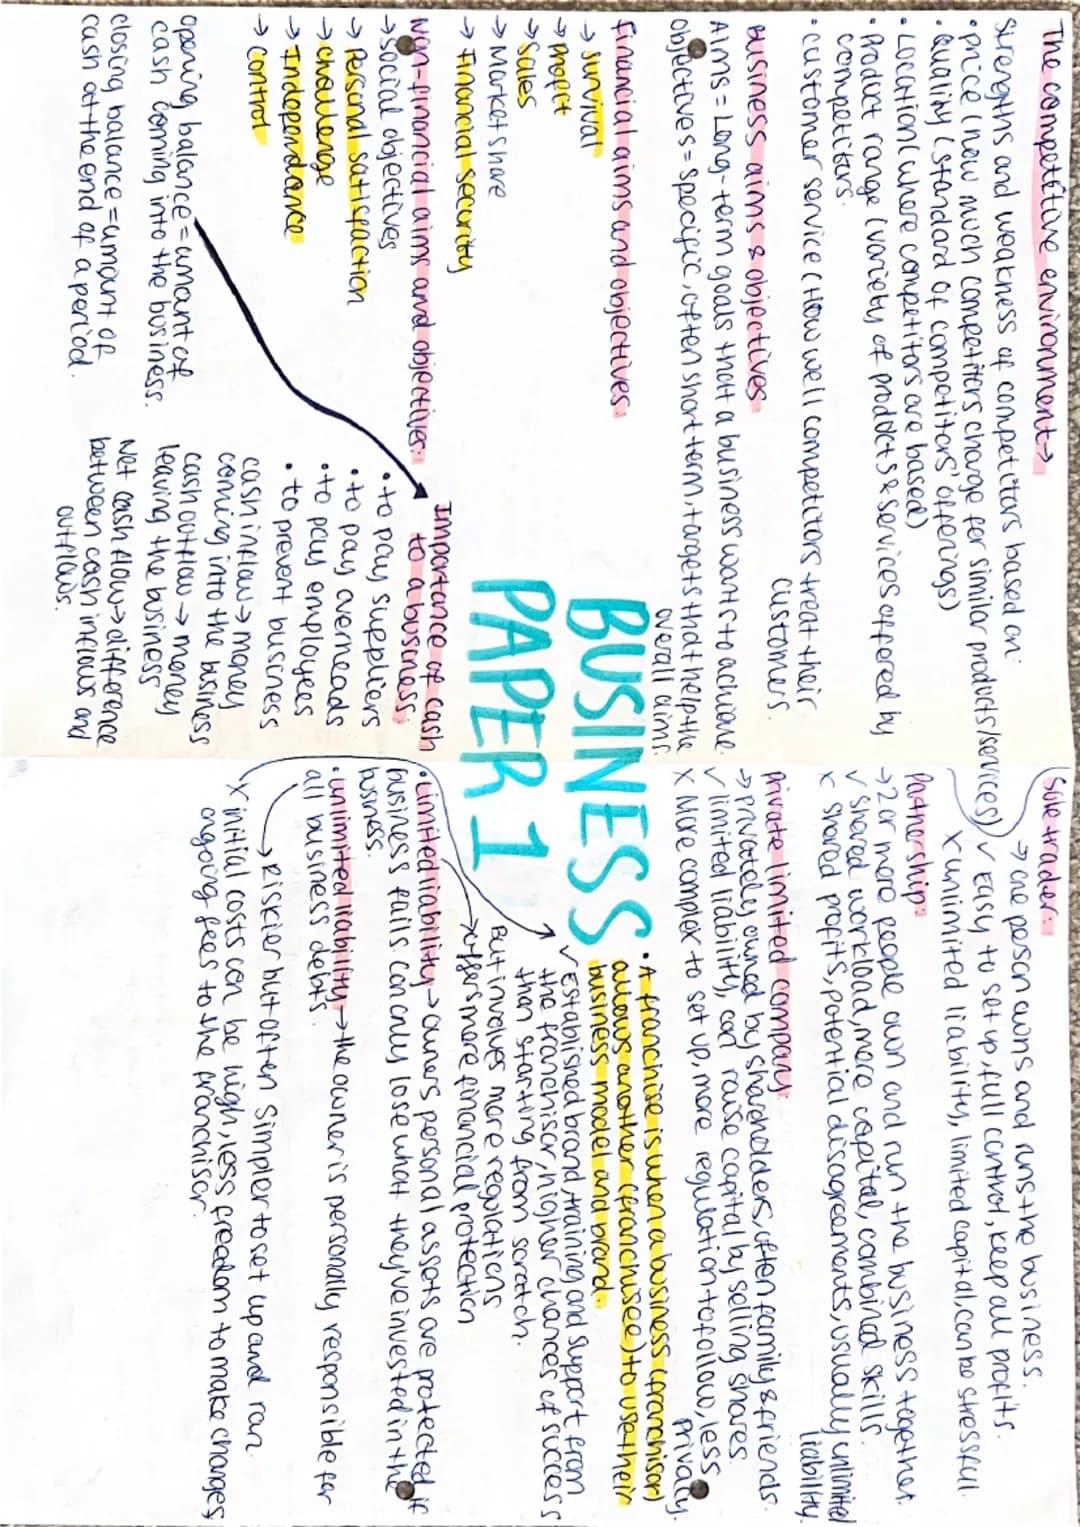 The competitive environment→
Strengths and weakness of competitors based on:
• price (how much competitors charge for similar products/services)
• quality (standard of competitors' offerings)
• Location (where competitors are based)
• Product range (variety of products & services offered by
competitors.
• customer service (How well competitors treat their
customers.
Business aims & objectives
Aims = Long-term goals that a business wants to achieve.
objectives = specific, often short term, targets that help the
overall aims.
Financial aims and objectives.
→ survival
→ profit
→ sales
→ Market share
→ Financial security
Non-financial aims and objectives.
→ social objectives
→ personal satisfaction
→ challenge
→ Independance
→ control
opening balance = amount of
cash coming into the business.
closing balance = amount of
cash at the end of a period.
Importance of cash
to a business.
• to pay suppliers
• to pay overheads
• to pay employees
• to prevent business
cash inflow → money
coming into the business
cash outflow → money
leaving the business
Net cash flow → difference
between cash inflows and
outflows.
BUSINESS
PAPER 1
Sole trader:
→ one person owns and runs the business.
✓ Easy to set up, full control, keep all profits.
x unlimited liability, limited capital, can be stressful.
Partnership:
→ 2 or more people own and run the business together.
✓ shared workload, more capital, combined skills.
x shared profits, potential disagreements, usually unlimited
liability.
Private limited company:
→ privately owned by shareholders, often family & friends.
✓ limited liability, can raise capital by selling shares.
x More complex to set up, more regulation to follow, less
privacy.
• A franchise is when a business (franchisor)
allows another (franchisee) to use their
business model and brand.
✓ Established brand, training and support from
the franchisor, higher chances of success
than starting from scratch.
But involves more regulations
→ offers more financial protection
• Limited liability → owners personal assets are protected if
business fails can only lose what they've invested in the
business.
• unlimited liability → the owner is personally responsible for
all business debts.
→ Riskier but often simpler to set up and run
x initial costs can be high, less freedom to make changes,
ongoing fees to the franchisor.